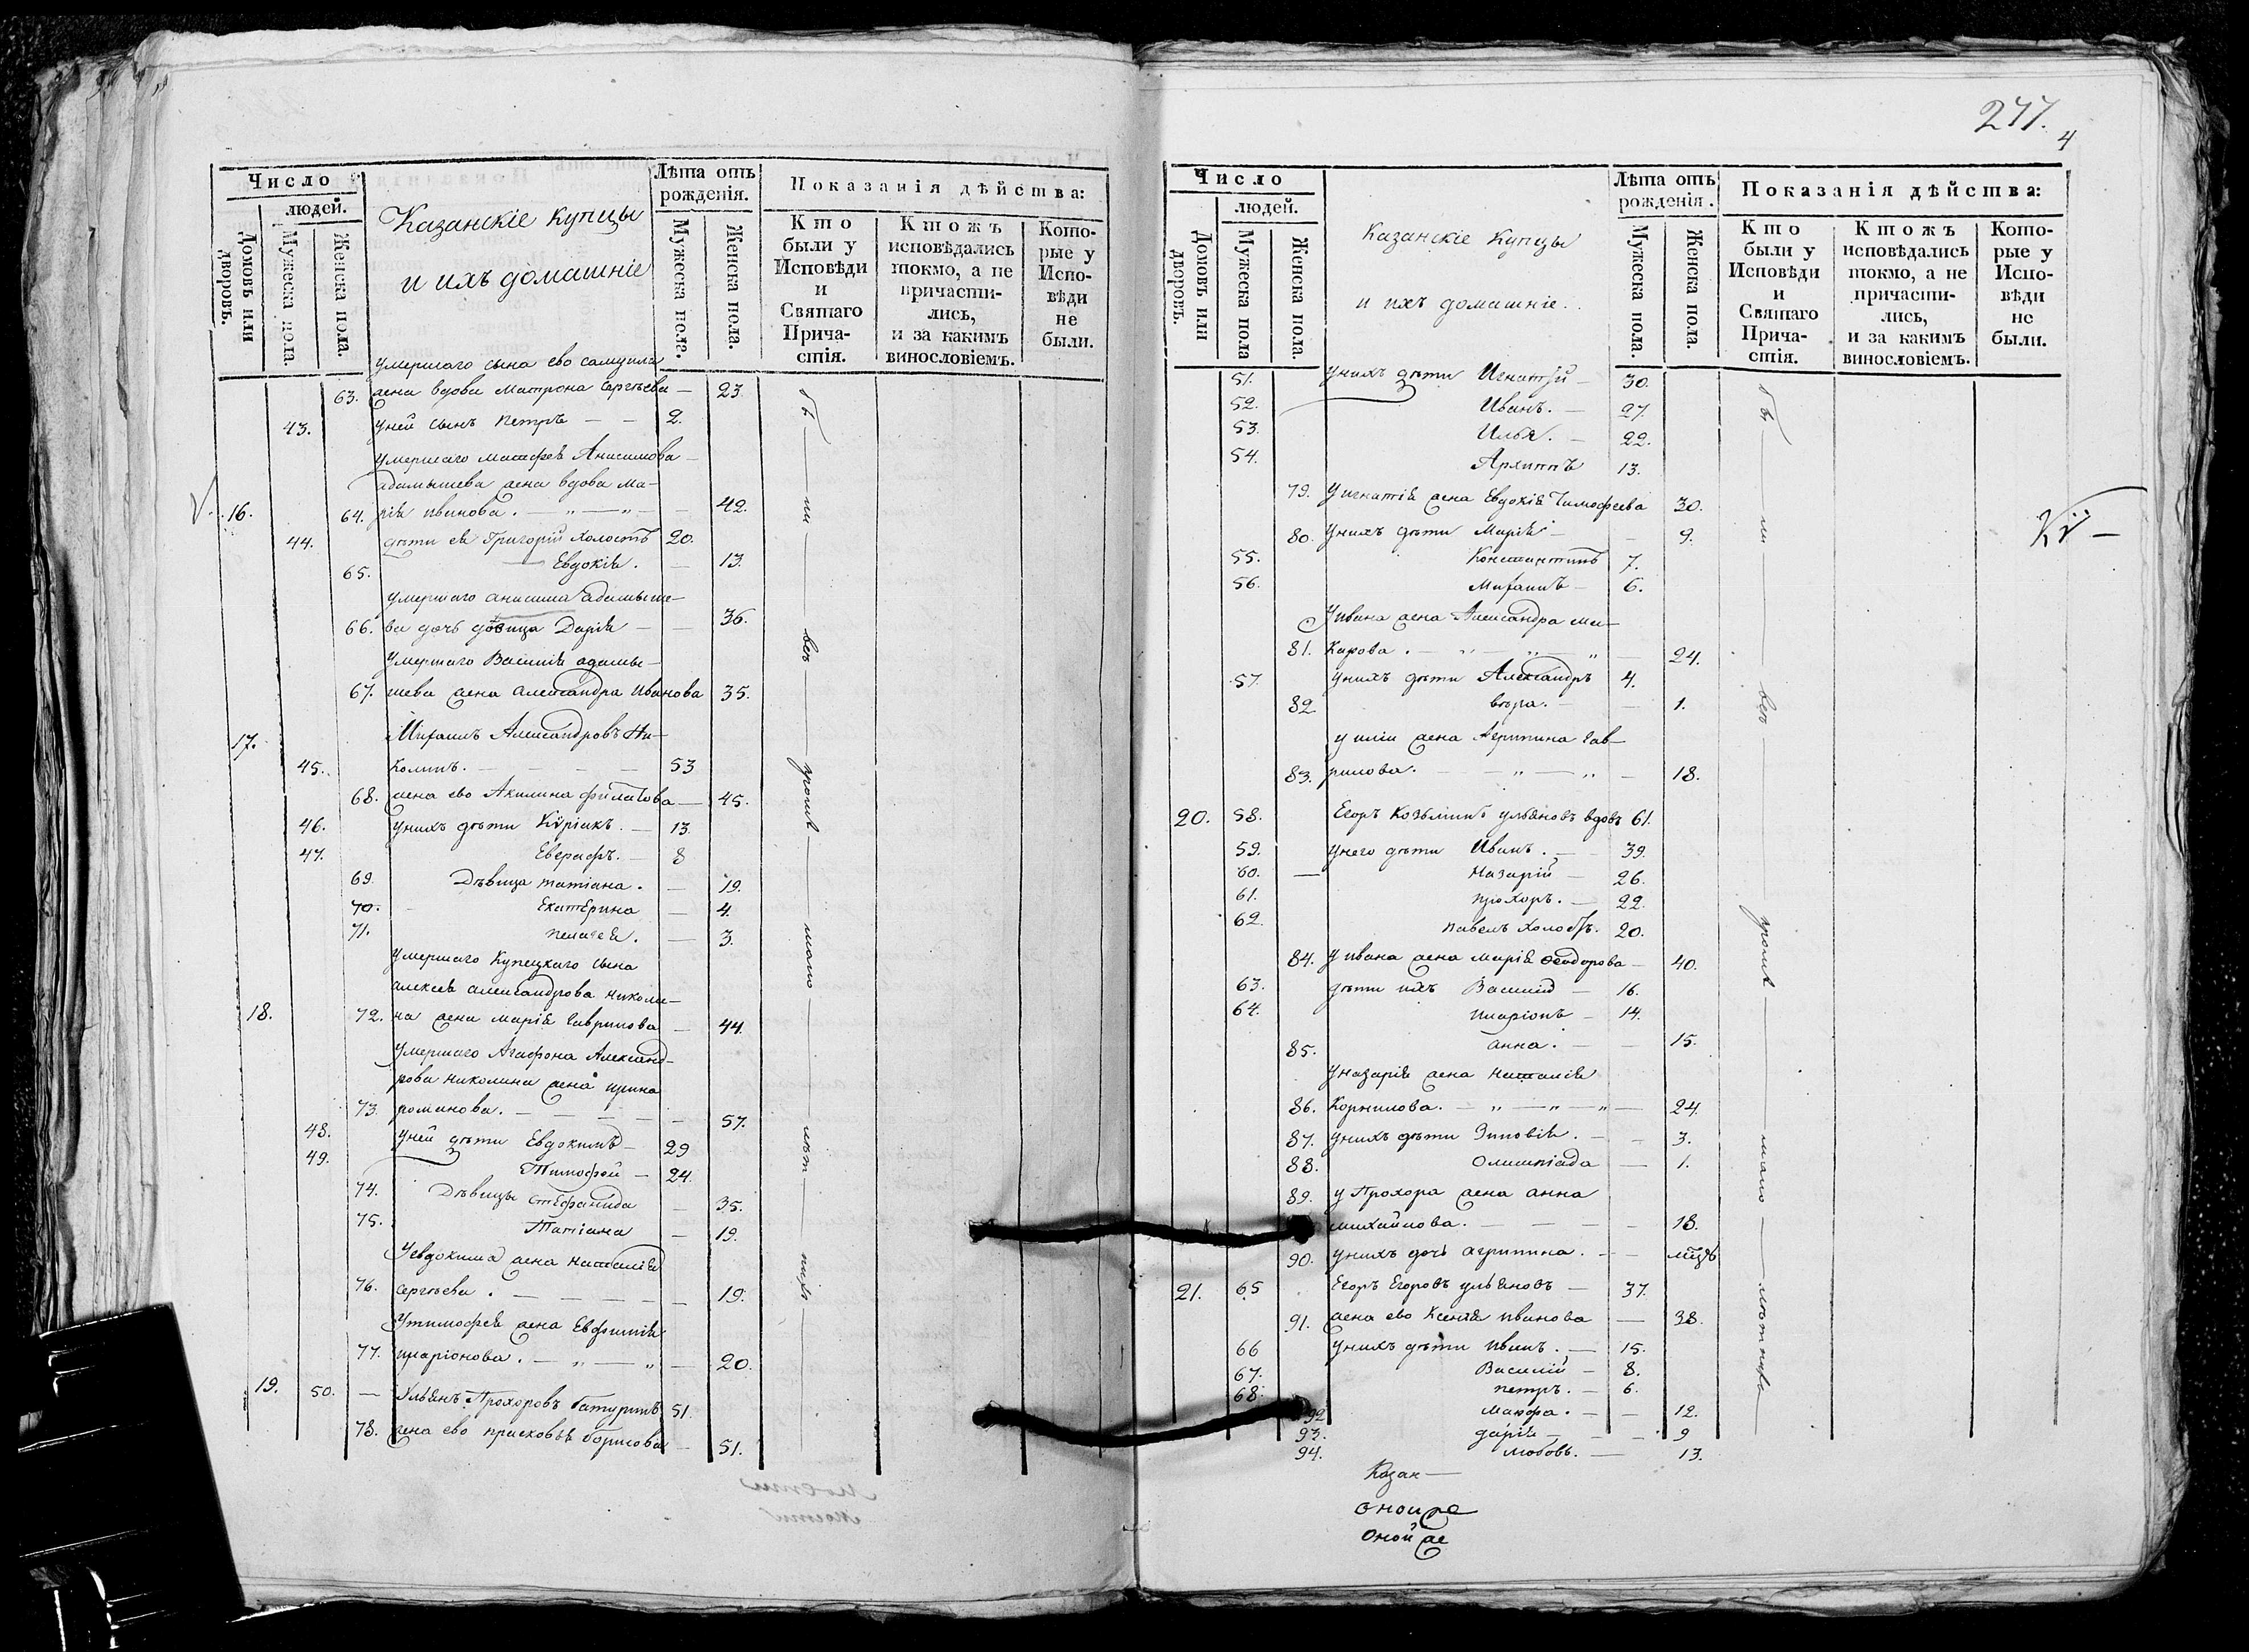 Число
людей.
Домовъ или дворовъ.
Мужеска пола.
Женска пола.
Казанскіе купцы
и ихъ домашніе
Лѣта отъ рожденія.
Мужеска пола.
Женска пола.
Показанія дѣйства:
Кто были у Исповѣди и Святаго Причастія.
Ктожъ исповѣдались токмо, а не причастились, и за какимъ винословіемъ.
Которые у Исповѣди не были.
умершаго сына ево самуила
63. жена вдова матрона сергѣева — 23
43. уней сынъ петръ — — 2.
умершаго матфея Анисимова
адамышева жена вдова ма-
16. 64. рія иванова. — „ — „ — 42.
44. дѣти ея Григорій холостъ 20.
65. Евдокія. — 13.
умершаго анисима адамыше-
66. ва дочь двица Дарія — — 36.
умершаго Василія адамы-
67. шева жена александра иванова 35.
17. Михаилъ Александровъ Ни-
45. колинъ. — — — — 53
68. жена ево Акилина филатова — 45.
46. унихъ дѣти Кѵріакъ. — 13.
47. Евграфъ. — 8
69. Дѣвица татіана. — 19.
70. Екатерина — 4.
71. пелагея. — 3.
умершаго купецкаго сына
алексея александрова николи-
18. 72. на жена марія гаврилова — 44.
умершаго Агафона Александ-
рова николина жена ирина
73. романова. — — — — — 57.
48. уней дѣти Евдокимъ — 29
49. Тимофей — 24.
74. Дѣвицы стефанида — 35.
75. Татіана — 19.
уевдокима жена наталія
76. сергѣева. — — — — — 19.
утимофея жена Евфимія
77. иларіонова. — „ — „ — 20.
19. 50. — Ульянъ Прохоровъ батуринъ 51.
78. жена ево прасковья борисова — 51.
277.
4
Число
людей.
Домовъ или дворовъ.
Мужеска пола
Женска пола.
Казанскіе купцы
и ихъ домашніе.
Лѣта отъ рожденія.
Мужеска пола.
Женска пола.
Показанія дѣйства:
Кто были у Исповѣди и Святаго Причастія.
Ктожъ исповѣдались токмо, а не причастились, и за какимъ винословіемъ.
Которые у Исповѣди не были.
51. унихъ дѣти Игнатій — 30.
52. Иванъ. — 27.
53. Илья. — 22.
54. Архиппъ 13.
79. у игнатія жена Евдокія Тимофеева 30.
80. унихъ дѣти Марія — — 9.
55. Константинъ 7.
56. Михаилъ — 6.
уивана жена Александра ма-
81. карова. — „ — „ — „ — 24.
57. унихъ дѣти Александръ 4.
82. вѣра. — — 1.
у иліи жена Агрипина гав-
83. рилова. — — „ — „ — 18.
20. 58. Егоръ козьминъ ульяновъ вдовъ 61.
59. унего дѣти Иванъ. — 39.
60. — Назарій — 26.
61. прохоръ. — 22.
62. павелъ холостъ. 20.
84. у ивана жена марія ѳеодорова — 40.
63. дѣти ихъ Василій — 16.
64. иларіонъ — 14.
85. анна. — — 15.
уназарія жена наталія
86. Корнилова. — „ — „ — „ — 24.
87. унихъ дѣти Зиновія. — — 3.
88. олимпіада — 1.
89. у Прохора жена анна
михайлова. — — — — 18.
90. унихъ дочь агрипина. — —
21. 65 Егоръ Егоровъ ульяновъ — 37.
91. жена ево Ксенія иванова — 38.
66 унихъ дѣти иванъ. — 15.
67. Василій — 8.
68. петръ. — 6.
92 мавра. — — 12.
93. дарія — — — 9
94. любовь. — 13.
Казан—